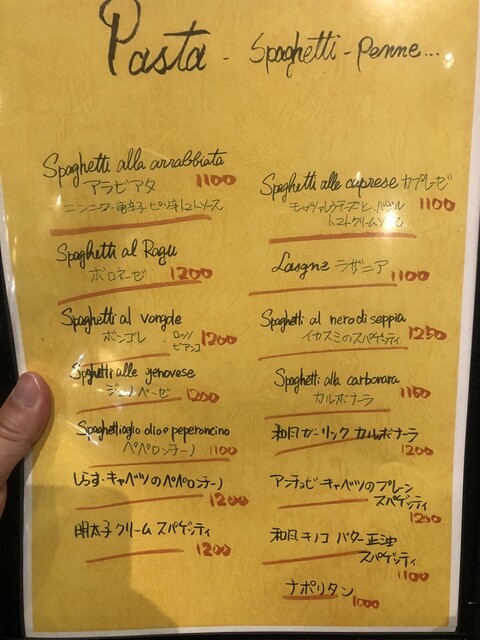 Pasta - Spaghetti - Penne...
Spaghetti alla arrabbiata
アラビアタ 1100
ニンニク・唐辛子 ピリ辛トマトソース
Spaghetti al Ragu
ボロネーゼ 1200
Spaghetti al vongole
ボンゴレ ロッソ 1200
ビアンコ
Spaghetti alle genovese
ジェノベーゼ 1200
Spaghetti aglio olio e peperoncino
ペペロンチーノ 1100
しらす・キャベツのペペロンチーノ
1200
明太子クリームスパゲッティ
1200
Spaghetti alle caprese カプレーゼ
モッツァレラチーズと、バジル 1100
トマトクリームソース
Lasgne ラザニア
1100
Spaghetti al nero di seppia
イカスミのスパゲッティ 1250
Spaghetti alla carbonara
カルボナーラ 1150
和風ガーリック カルボナーラ
1200
アンチョビ・キャベツのプレーン
スパゲッティ
1200
和風キノコ バター正油
スパゲッティ
1100
ナポリタン
1000